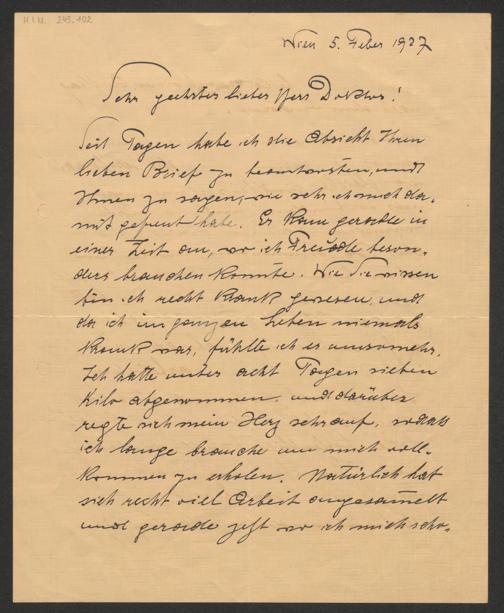 H.I.N. 243.102
Wien 5. Feber 1927
Sehr geehrter lieber Herr Doktor!
Seit Tagen habe ich die Absicht Ihren
lieben Brief zu beantworten, und
Ihnen zu sagen, wie sehr ich mich da-
mit gefreut habe. Er kam gerade in
einer Zeit an, wo ich Freude beson-
ders brauchen konnte. Wie Sie wissen
bin ich recht krank gewesen, und
da ich im ganzen Leben niemals
krank war, fühlte ich es umsomehr.
Ich hatte unter acht Tagen sieben
Kilo abgenommen, und darüber
regte sich mein Herz sehr auf, sodaß
ich lange brauche um mich voll-
kommen zu erholen. Natürlich hat
sich recht viel Arbeit angesam̅elt
und gerade jetzt wo ich mich scho-